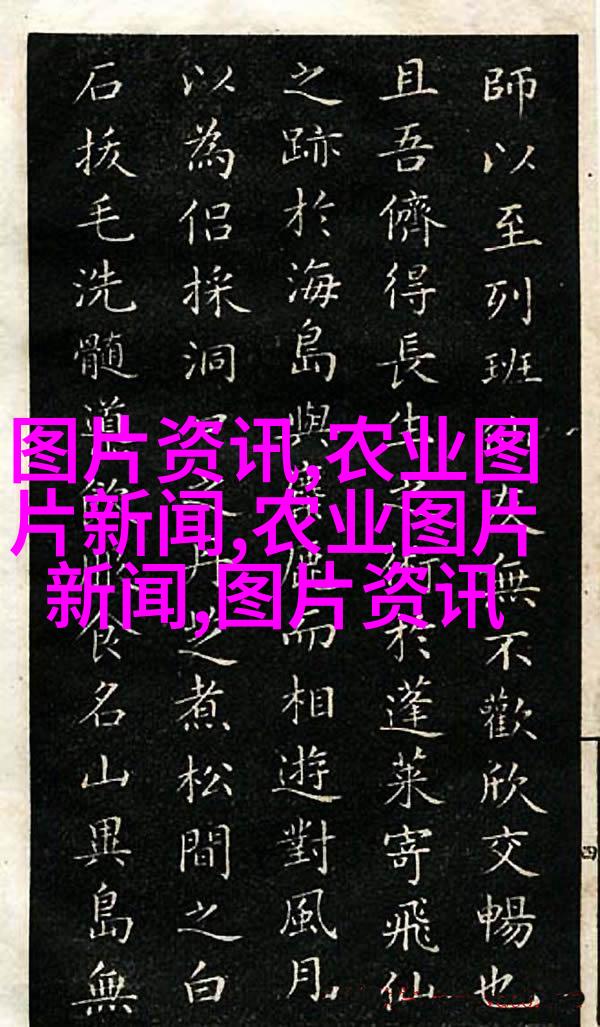 師以至列班無不歡欣交暢也
且吾儕得長生之術於蓬萊寄飛仙
之跡於海島與而相遊對風月
以為侶採洞口之丹芝煮松間之白
石拔毛洗髓道食名山異島無
图片资讯,农业图
片新闻,农业图片
新闻,图片资讯
四